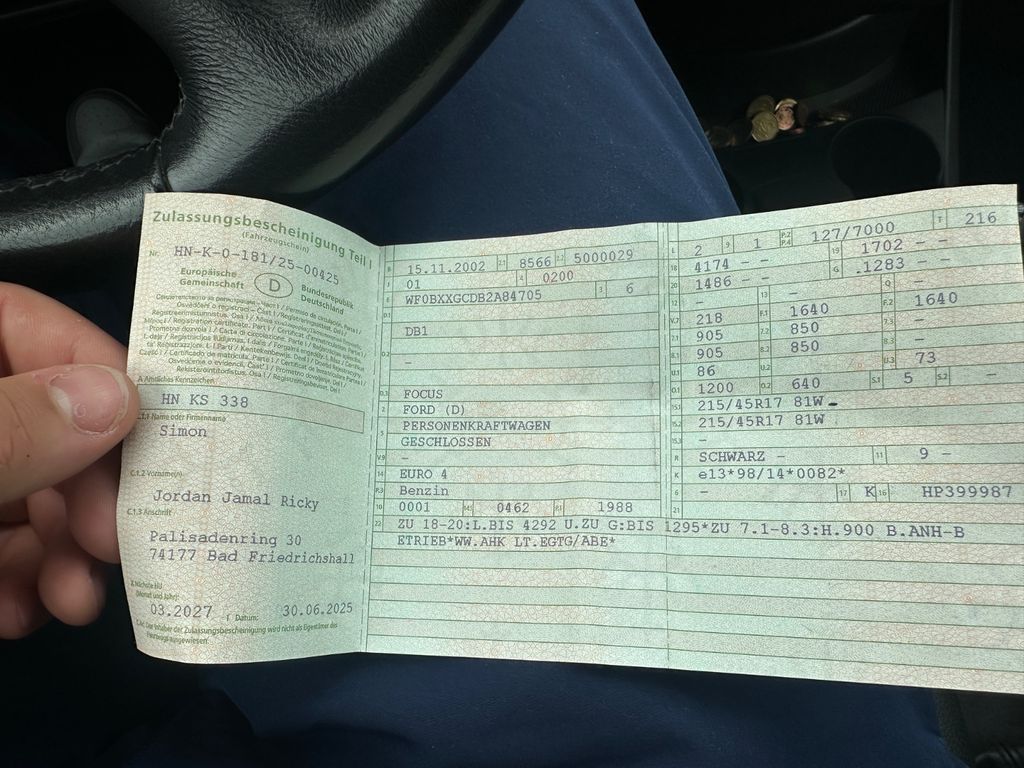 Zulassungsbescheinigung Teil I
(Fahrzeugschein)
Nr. HN-K-0-181/25-00425
Europäische Gemeinschaft
D
Bundesrepublik Deutschland
A Amtliches Kennzeichen
HN KS 338
C.1.1 Name oder Firmenname
Simon
C.1.2 Vorname(n)
Jordan Jamal Ricky
C.1.3 Anschrift
Palisadenring 30
74177 Bad Friedrichshall
Nächste HU
(Monat und Jahr)
03.2027 I Datum: 30.06.2025
C.4c Der Inhaber der Zulassungsbescheinigung wird nicht als Eigentümer des
Fahrzeugs ausgewiesen.
B 15.11.2002 2.1 8566 2.2 5000029
J 01 4 0200
E WF0BXXGCDB2A84705 3 6
D.1
DB1
D.2
–
D.3 FOCUS
2 FORD (D)
5 PERSONENKRAFTWAGEN
GESCHLOSSEN
V.9 –
14 EURO 4
P.3 Benzin
10 0001 14.1 0462 P.1 1988
22 ZU 18-20:L.BIS 4292 U.ZU G:BIS 1295*ZU 7.1-8.3:H.900 B.ANH-B
ETRIEB*WW.AHK LT.EGTG/ABE*
L 2 9 1 P.2 P.4 127/7000 T 216
18 4174 – – 19 1702 – –
20 1486 – – G .1283 – –
12 – 13 – Q –
V.7 218 F.1 1640 F.2 1640
7.1 905 7.2 850 7.3 –
8.1 905 8.2 850 8.3 –
U.1 86 U.3 73
O.1 1200 O.2 640 S.1 5 S.2 –
15.1 215/45R17 81W
15.2 215/45R17 81W
15.3 –
R SCHWARZ – 11 9 –
K e13*98/14*0082*
6 – 17 K 16 HP399987
21